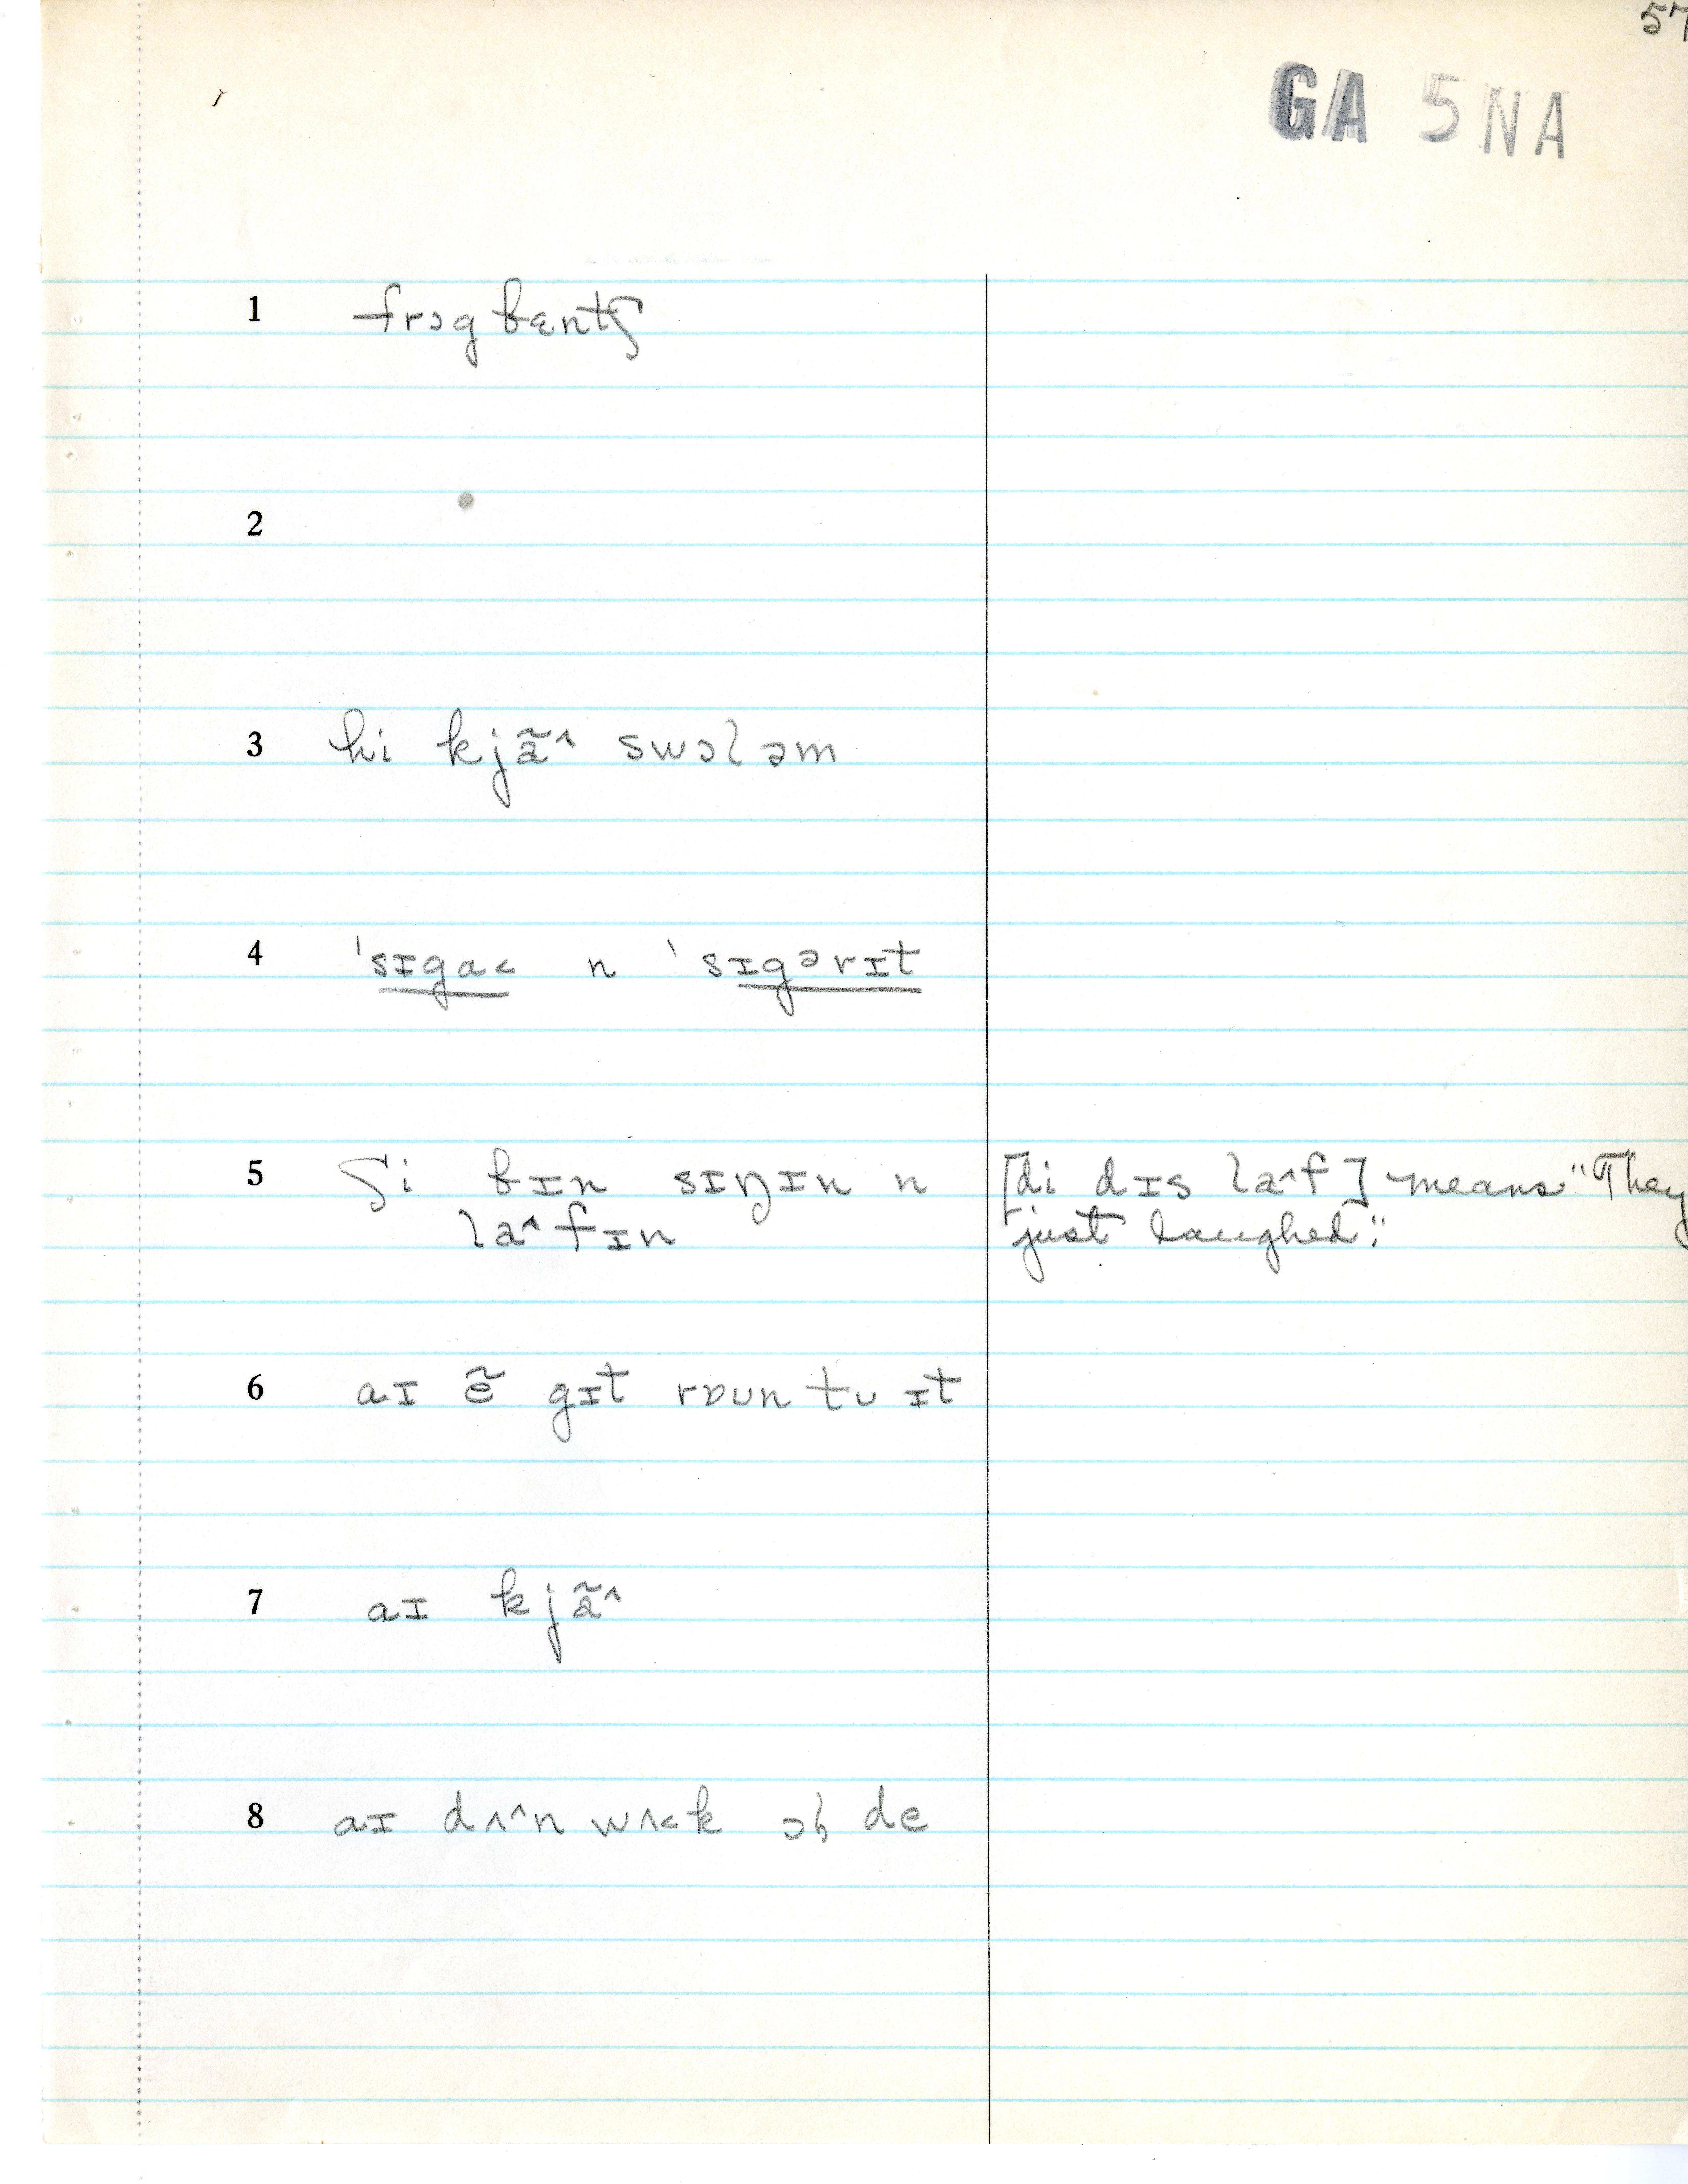 57
GA 5NA
1 frɔg ɓɛntʃ
2
3 hi kjã^ swɔləm
4 'sɪga< n 'sɪgərɪt
5 ʃi ɓɪn sɪŋɪn n
la^fɪn
[di dɪs la^f] means "They
just laughed."
6 aɪ ẽ gɪt rɒun tu ɪt
7 aɪ kjã^
8 aɪ dʌ^n wʌ<k ɔɓ de